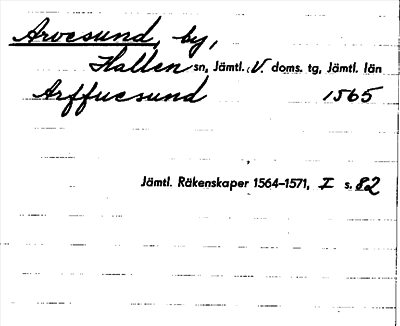 Arvesund, by,
Hallen sn, Jämtl. V. doms. tg, Jämtl. län
Arffuesund 1565
Jämtl. Räkenskaper 1564–1571, I s. 82